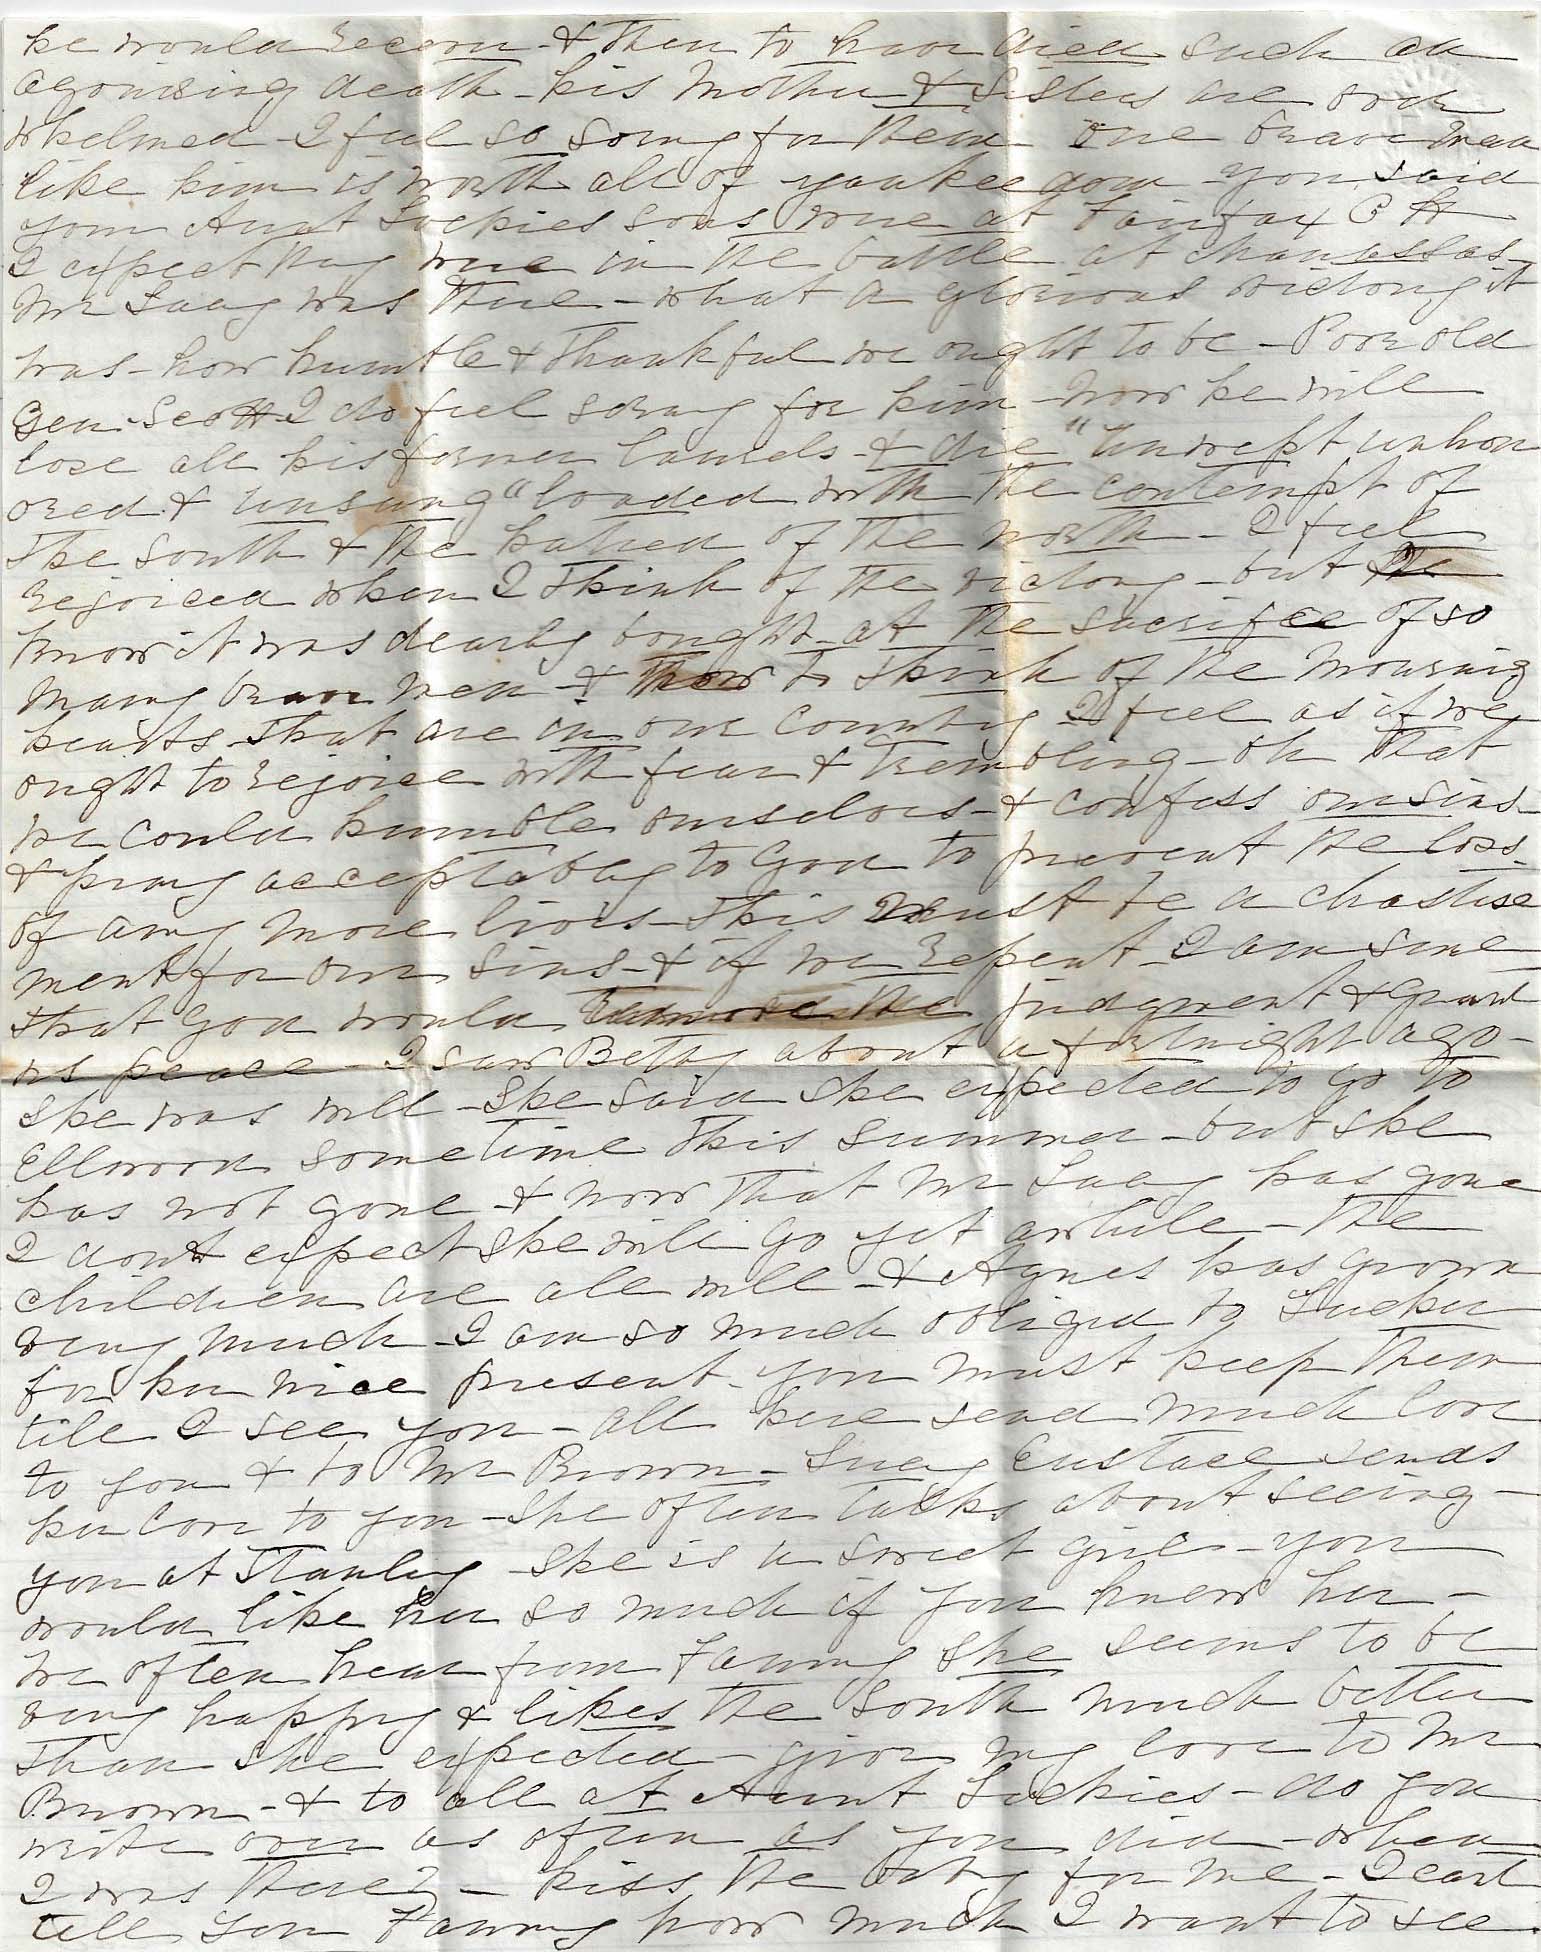 he would recover & then to have died such an
agonising death - his Mother & Sisters are over
whelmed - I feel so sorry for them one brave man
like him is worth all of yankeedom - you said
your Aunt Luckies sons were at Fairfax C H
I expect they were in the battle at Manassas -
Mr Lacy was there - what a glorious victory it
was - how humble & thankful we ought to be - Poor old
Gen. Scott I do feel sorry for him - Now he will
lose all his former laurels & die "unwept unhon
ored & unsung" loaded with the contempt of
the South & the hatred of the North - I feel
rejoiced when I think of the victory - but
know it was dearly bought at the sacrifice of so
many brave men & then to think of the mourning
hearts that are in our country I feel as if we
ought to rejoice with fear & trembling - oh that
we could humble ourselves - & confess our sins
& pray acceptably to God to prevent the loss
of any more lives - This must be a chastise
ment for our sins - & if we repent I am sure
that God would remove the judgment & grant
us peace - I saw Betty about a fortnight ago -
She was well - She said she expected to go to
Ellwood sometime this summer - but she
has not gone & now that Mr Lacy has gone
I dont expect she will go yet awhile - the
children are all well - & Agnes has grown
very much - I am so much obliged to
for her nice present. you must keep them
till I see you - all here send much love
to you & to Mr Brown - Lucy Eustace sends
her love to you - She often talks about seeing -
you at Stanley - She is a sweet girl - you
would like her so much if you knew her -
We often hear from Fanny she seems to be
very happy & likes the South much better
than she expected - give my love to Mr
Brown - & to all at Aunt Luckies - do you
write over as often as you did - when
I was there? - kiss the baby for me - I cant
tell you Fanny how much I want to see